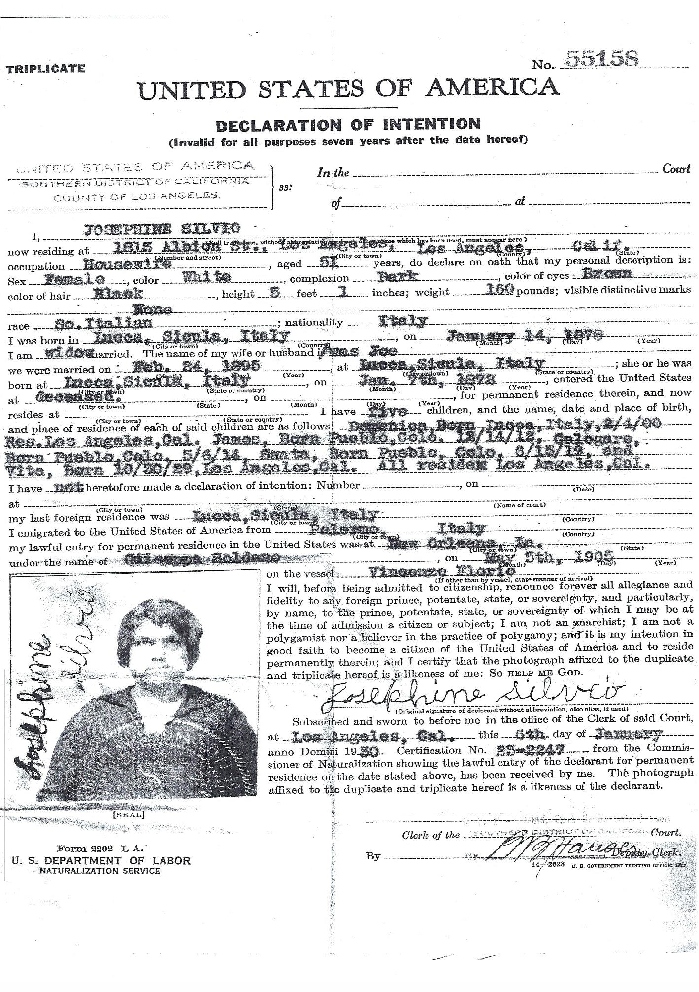 TRIPLICATE
No. 55158
UNITED STATES OF AMERICA
DECLARATION OF INTENTION
(Invalid for all purposes seven years after the date hereof)
UNITED STATES OF AMERICA
SOUTHERN DISTRICT OF CALIFORNIA
COUNTY OF LOS ANGELES.
ss:
In the Court
of at
I, JOSEPHINE SILVIO
now residing at 1815 Albion St., Los Angeles, Los Angeles, Calif.
occupation Housewife, aged 51 years, do declare on oath that my personal description is:
Sex Female, color White, complexion Dark, color of eyes Brown
color of hair Black, height 5 feet 1 inches; weight 160 pounds; visible distinctive marks
None
race So. Italian; nationality Italy
I was born in Lucca, Sicula, Italy, on January 14, 1878
I am widow married. The name of my wife or husband was Joe
we were married on Feb. 24, 1895 at Lucca, Sicula, Italy; she or he was
born at Lucca, Sicula, Italy, on Jan. 7th, 1873, entered the United States
at Deceased, on, for permanent residence therein, and now
resides at I have Five children, and the name, date and place of birth,
and place of residence of each of said children are as follows: Domenica, Born Lucca, Italy, 2/4/00
Res. Los Angeles, Cal. James, Born Pueblo, Colo. 12/14/12, Calogare,
Born Pueblo, Colo, 5/6/14, Santa, Born Pueblo, Colo, and
Vito, Born 10/30/20, Los Angeles, Cal. All reside Los Angeles, Cal.
I have not heretofore made a declaration of intention: Number, on
at
my last foreign residence was Lucca, Sicula Italy
I emigrated to the United States of America from Palermo, Italy
my lawful entry for permanent residence in the United States was at New Orleans, La.
under the name of, on May 5th, 1905
on the vessel Vincenzo Florio
(If other than by vessel, state manner of arrival)
I will, before being admitted to citizenship, renounce forever all allegiance and
fidelity to any foreign prince, potentate, state, or sovereignty, and particularly,
by name, to the prince, potentate, state, or sovereignty of which I may be at
the time of admission a citizen or subject; I am not an anarchist; I am not a
polygamist nor a believer in the practice of polygamy; and it is my intention in
good faith to become a citizen of the United States of America and to reside
permanently therein; and I certify that the photograph affixed to the duplicate
and triplicate hereof is a likeness of me: SO HELP ME GOD.
Josephine Silvio
Josephine Silvio
(Original signature of declarant without abbreviation, also alias, if used)
Subscribed and sworn to before me in the office of the Clerk of said Court,
at Los Angeles, Cal. this 6th day of January
anno Domini 1930 Certification No. 23-2247 from the Commis-
sioner of Naturalization showing the lawful entry of the declarant for permanent
residence on the date stated above, has been received by me. The photograph
affixed to the duplicate and triplicate hereof is a likeness of the declarant.
[SEAL]
Clerk of the Court.
By Deputy Clerk.
Form 2202 L A.
U. S. DEPARTMENT OF LABOR
NATURALIZATION SERVICE
14-2623 U. S. GOVERNMENT PRINTING OFFICE